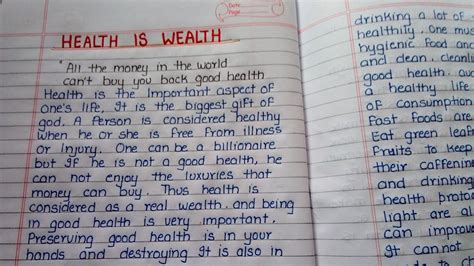 Date
Page
HEALTH IS WEALTH
"All the money in the world
can't buy you back good health
Health is the Important aspect of
one's life, It is the biggest gift of
god. A Person is considered healthy
when he or she is free from illness
or Injury. One can be a billionaire
but If he is not a good health, he
can not enjoy the luxuries that
money can buy. Thus health is
considered as a real wealth. and being
in good health is very important.
Preserving good health is in your
hands and destroying It is also in
drinking a lot of
healthily. One mus
hygienic food an
and clean. cleanli
good health a
a healthy life
of consumption
Fast foods are
Eat green leaf
Fruits to keep
their caffein
and drinking
health proto
light are a
can improve
It cannot